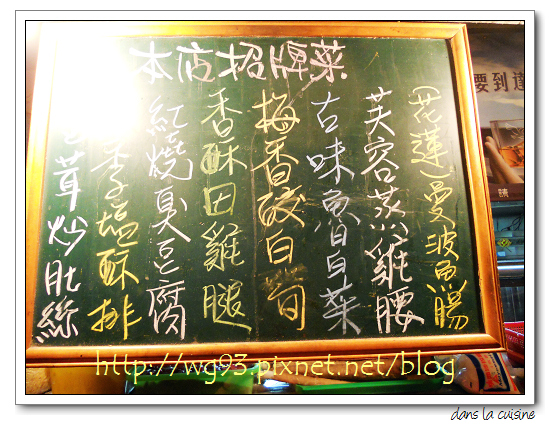 本店招牌菜
(花蓮)曼波魚腸
芙容蒸雞腰
古味魯白菜
梅香皎白筍
香酥田雞腿
紅燒臭豆腐
季塩酥排
茸炒肚絲
要到達
請
http://wg93.pixnet.net/blog
dans la cuisine